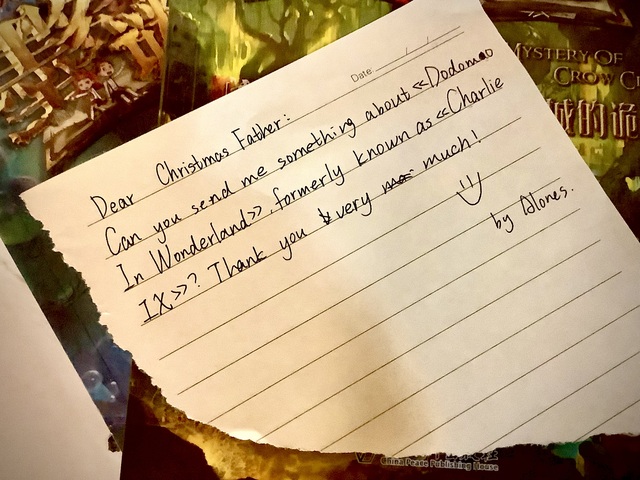 MYSTERY OF
CROW
城的诡
Date
Dear Christmas Father:
Can you send me something about «Dodomoo
In Wonderland», formerly known as «Charlie
IX»? Thank you very much!
by Alones.
China Peace Publishing House